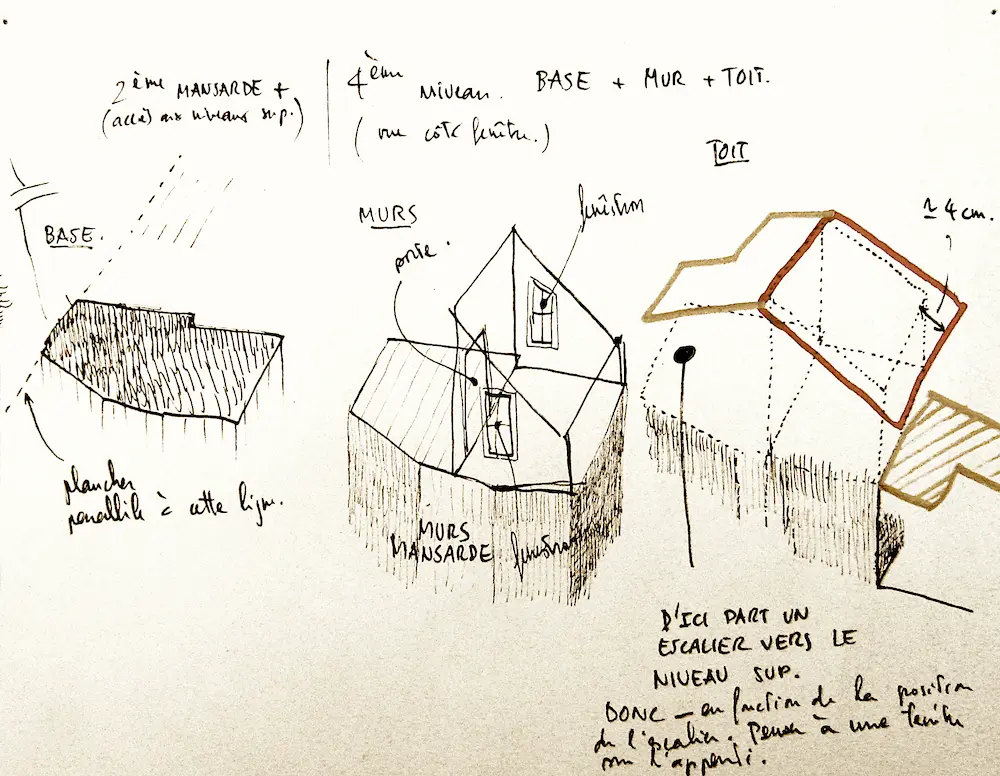 2ème MANSARDE +
(accès aux niveaux sup.)
4ème
niveau. BASE + MUR + TOIT.
(vue côté fenêtre.)
TOIT
BASE.
MURS
porte
fenêtron
≃ 4 cm.
plancher
parallèle à cette ligne.
MURS
MANSARDE
fenêtron
D'ICI PART UN
ESCALIER VERS LE
NIVEAU SUP.
DONC — en fonction de la position
de l'escalier. Penser à une fenêtre
sur l'appenti.